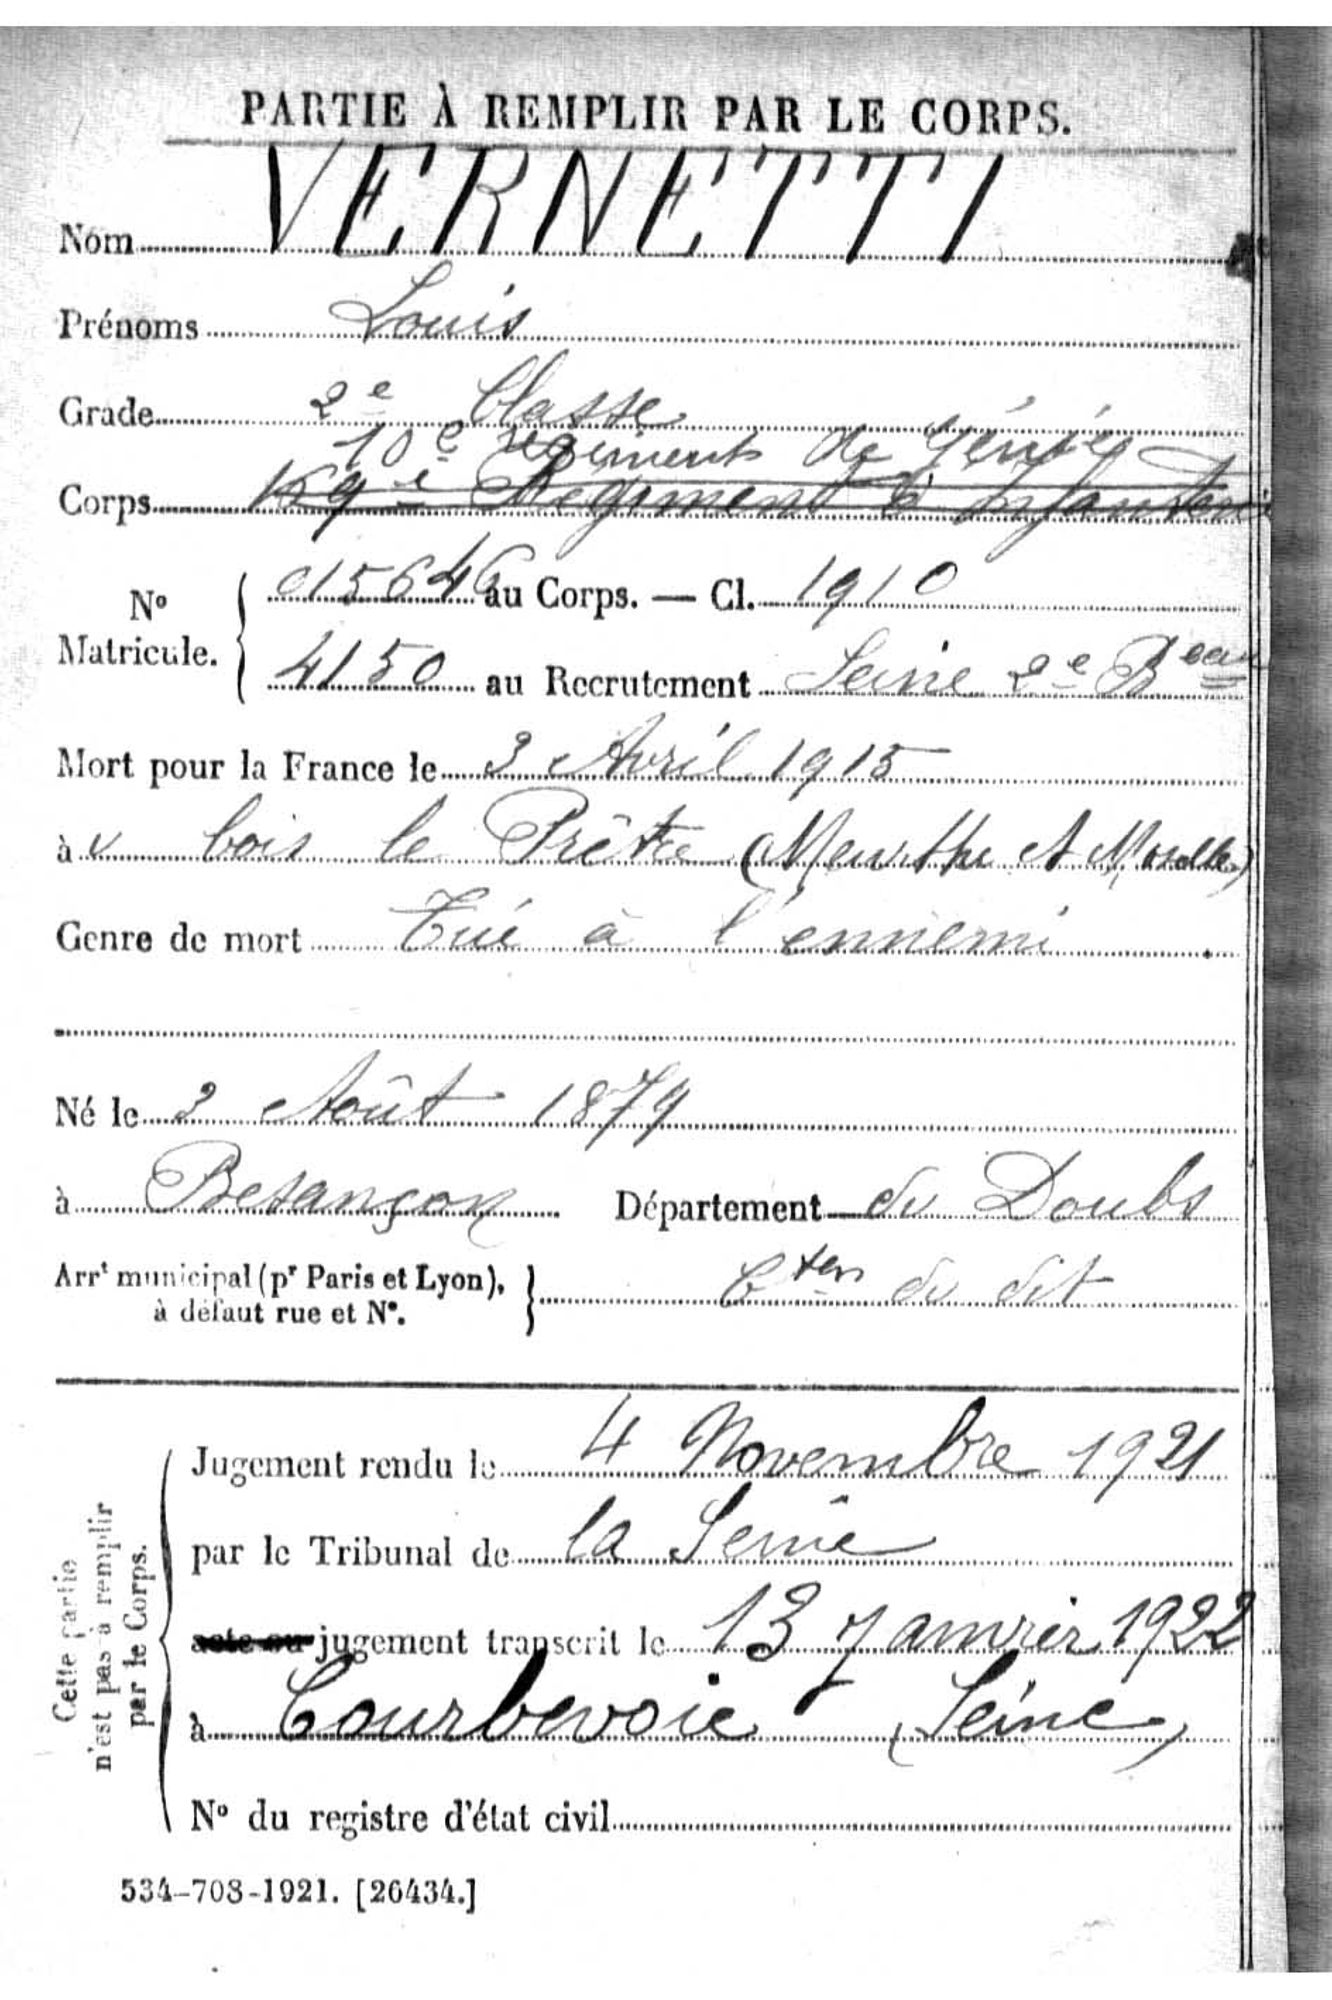 PARTIE À REMPLIR PAR LE CORPS.
Nom VERNETTI
Prénoms Louis
Grade 2e Classe
10e régiment de génie
Corps 169e Régiment d'Infanterie
No Matricule. { 015646 au Corps. — Cl. 1910
4150 au Recrutement Seine 2e Beau
Mort pour la France le 3 Avril 1915
à bois le Prêtre (Meurthe et Moselle)
Genre de mort Tué à l'ennemi
Né le 3 Août 1879
à Besançon Département du Doubs
Arrt municipal (pr Paris et Lyon), à défaut rue et No. } du dit
Cette partie n'est pas à remplir par le Corps.
Jugement rendu le 4 Novembre 1921
par le Tribunal de la Seine
acte ou jugement transcrit le 13 Janvier 1922
à Courbevoie (Seine)
No du registre d'état civil
534-708-1921. [26434.]